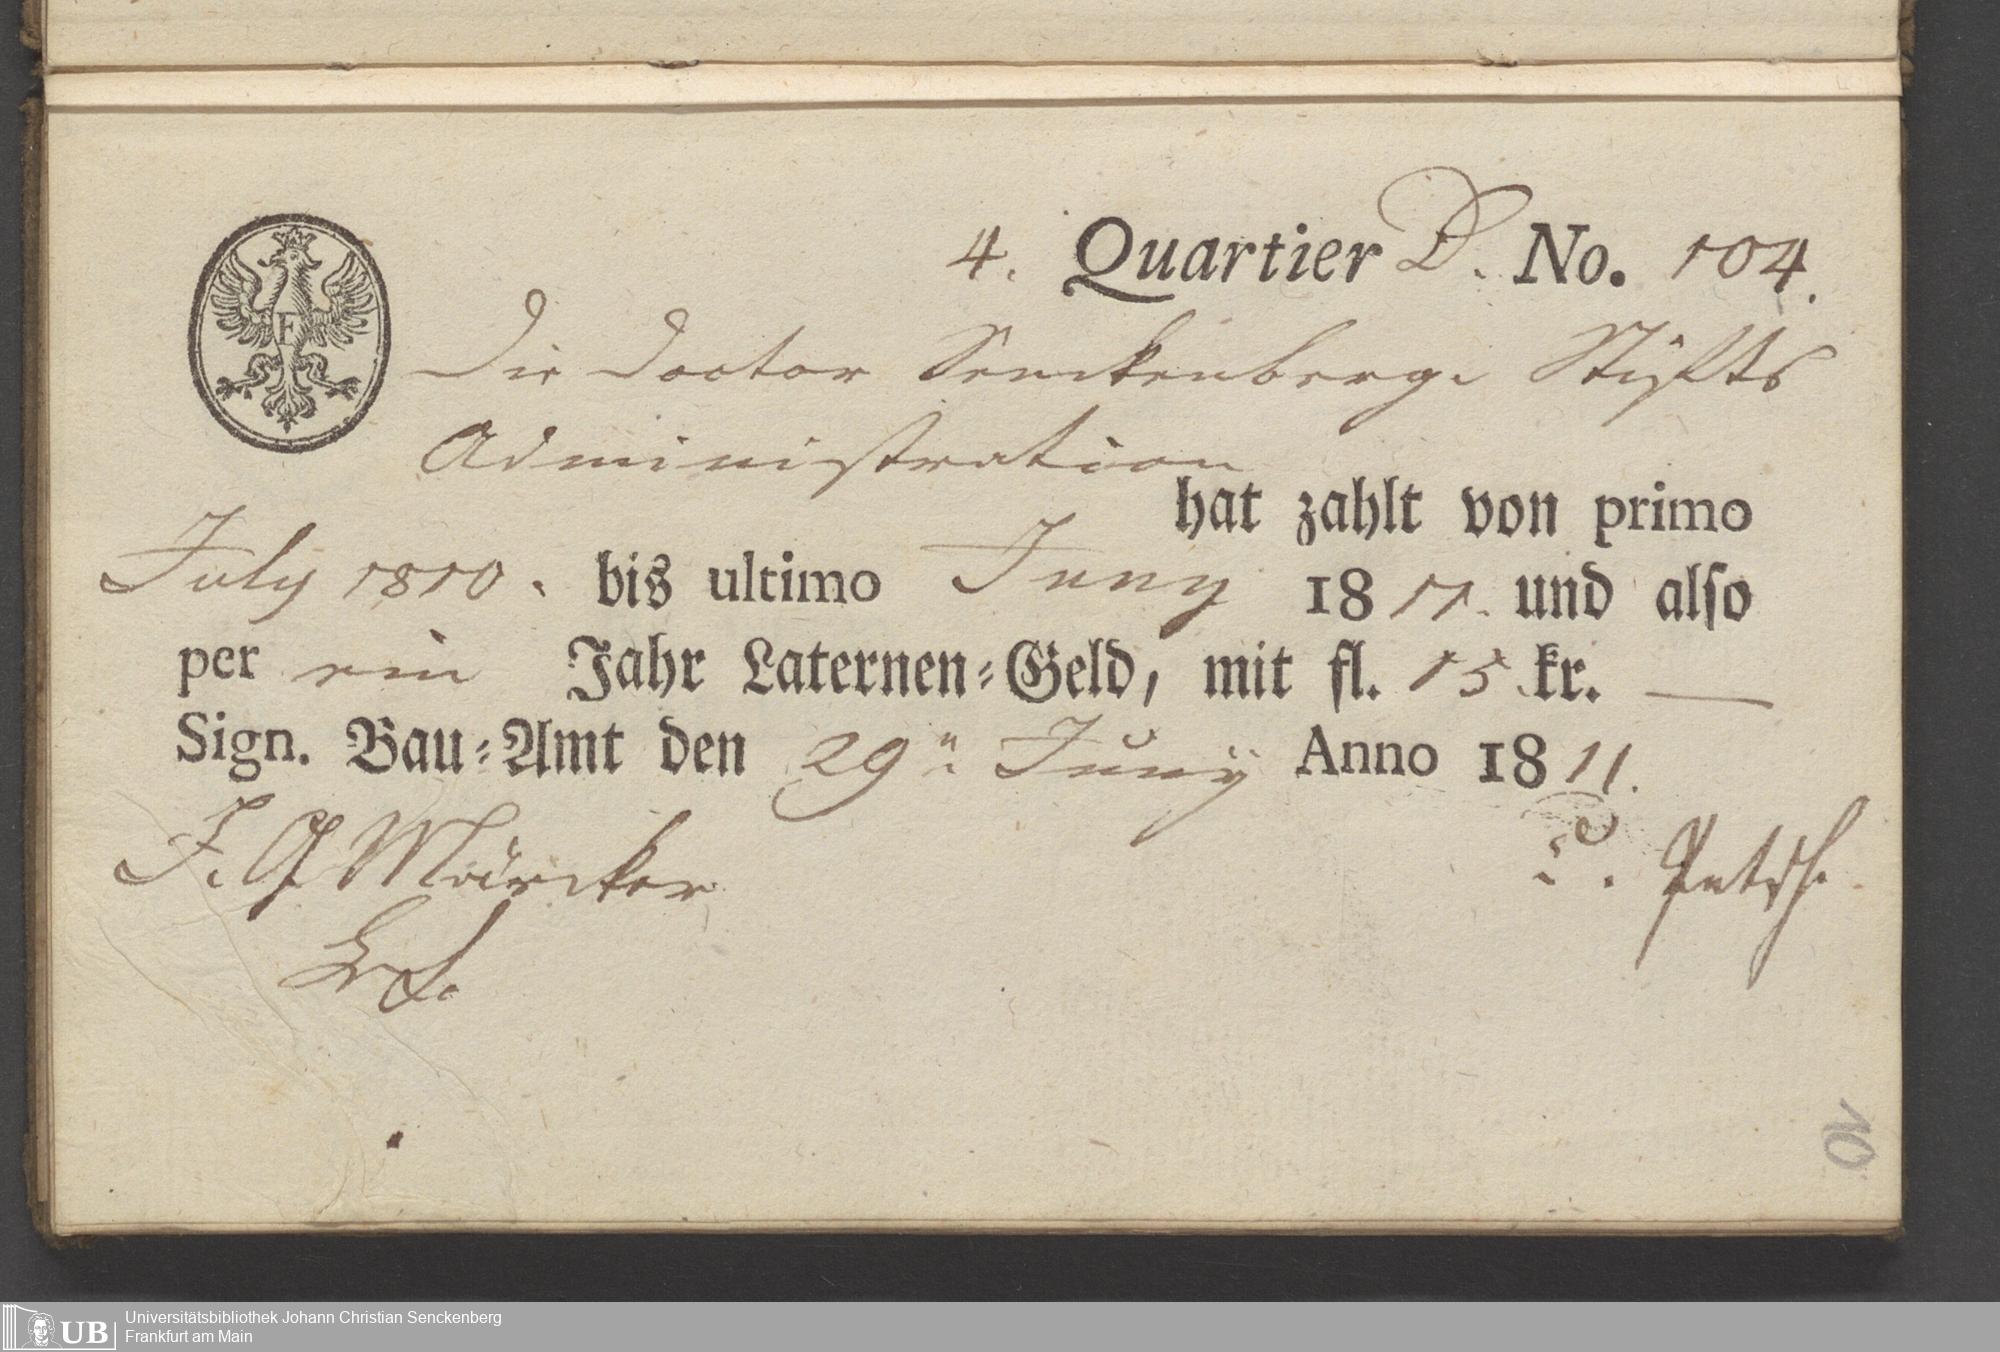 4. Quartier D. No. 104.
F
Die Doctor Senckenberg. Stifts
Administration
hat zahlt von primo
July 1810. bis ultimo Juny 1811. und also
per ein Jahr Laternen-Geld, mit fl. 15 kr. —
Sign. Bau-Amt den 29n Juny Anno 1811.
J. G Märcker
T. Petsch.
10
UB
Universitätsbibliothek Johann Christian Senckenberg
Frankfurt am Main